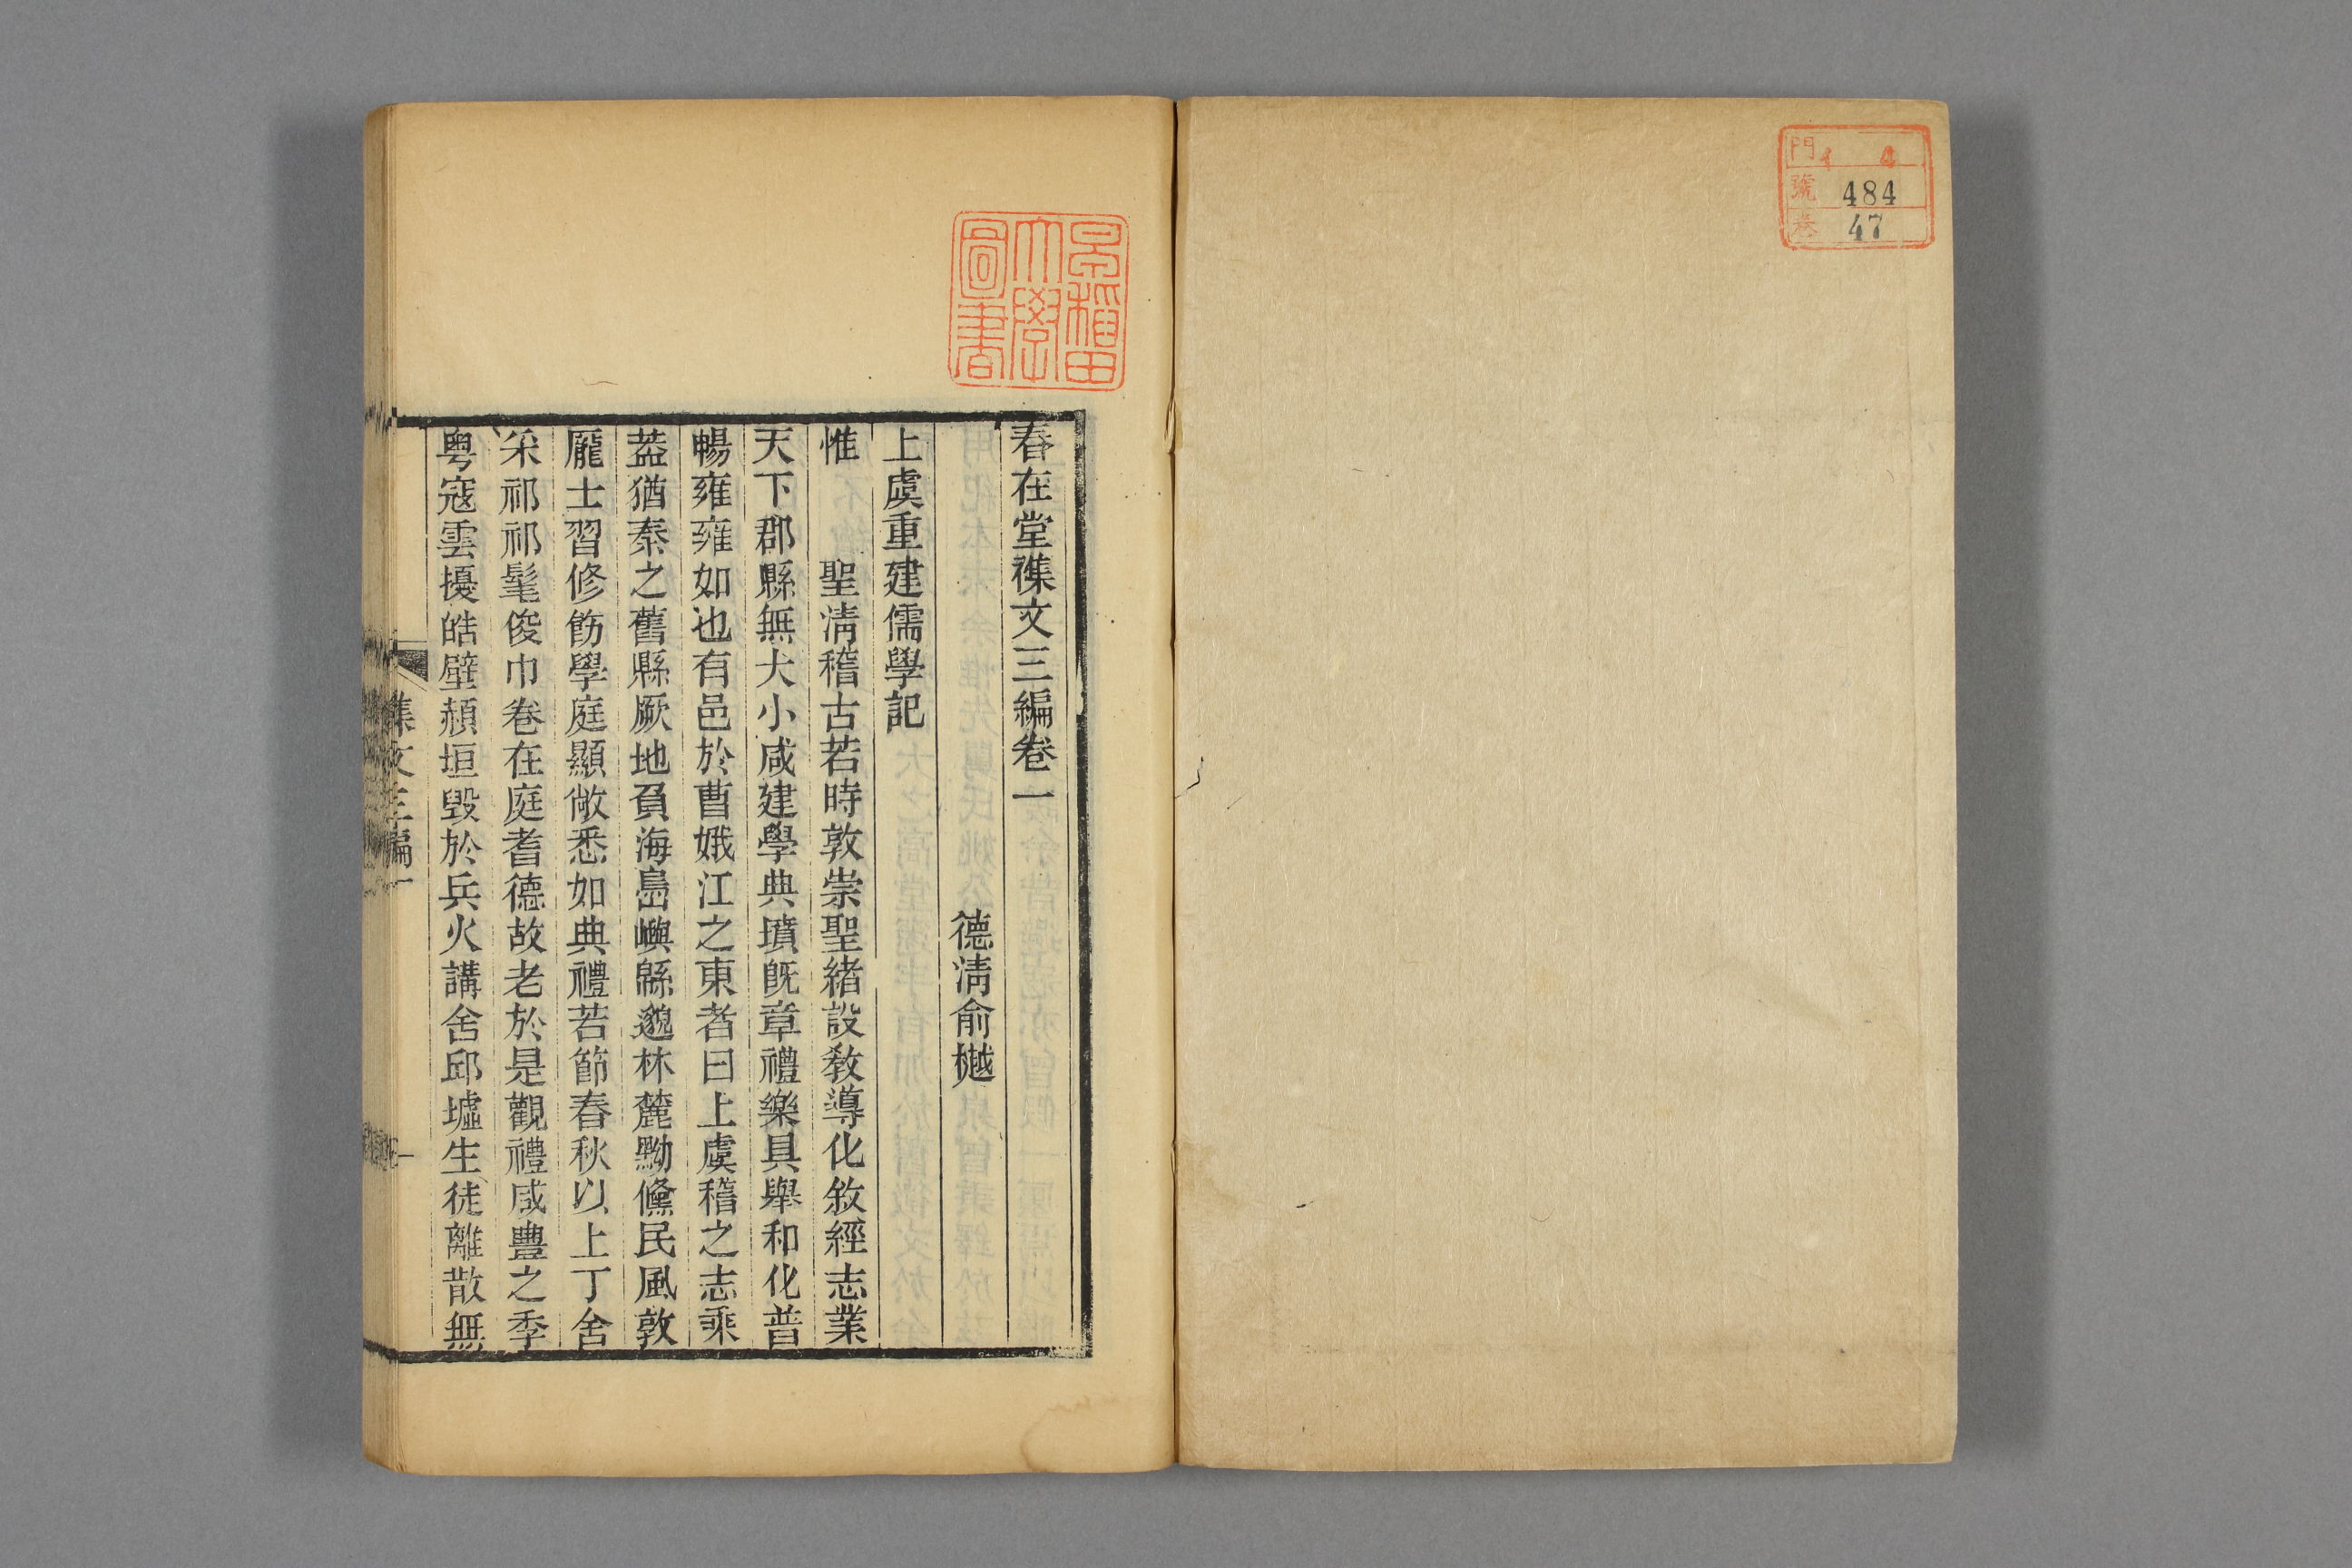 門 イ 4
號 484
卷 47
早稲田
大學
圖書
春在堂襍文三編卷一
德清俞樾
上虞重建儒學記
惟 聖清稽古若時敦崇聖緒設教導化敘經志業
天下郡縣無大小咸建學典墳旣章禮樂具舉和化普
暢雍雍如也有邑於曹娥江之東者曰上虞稽之志乘
葢猶秦之舊縣厥地負海島嶼緜邈林麓黝儵民風敦
龐士習修飭學庭顯敞悉如典禮若節春秋以上丁舍
采祁祁髦俊巾卷在庭耆德故老於是觀禮咸豐之季
粤寇雲擾皓壁頳垣毁於兵火講舍邱墟生徒離散無
襍文三編一
一